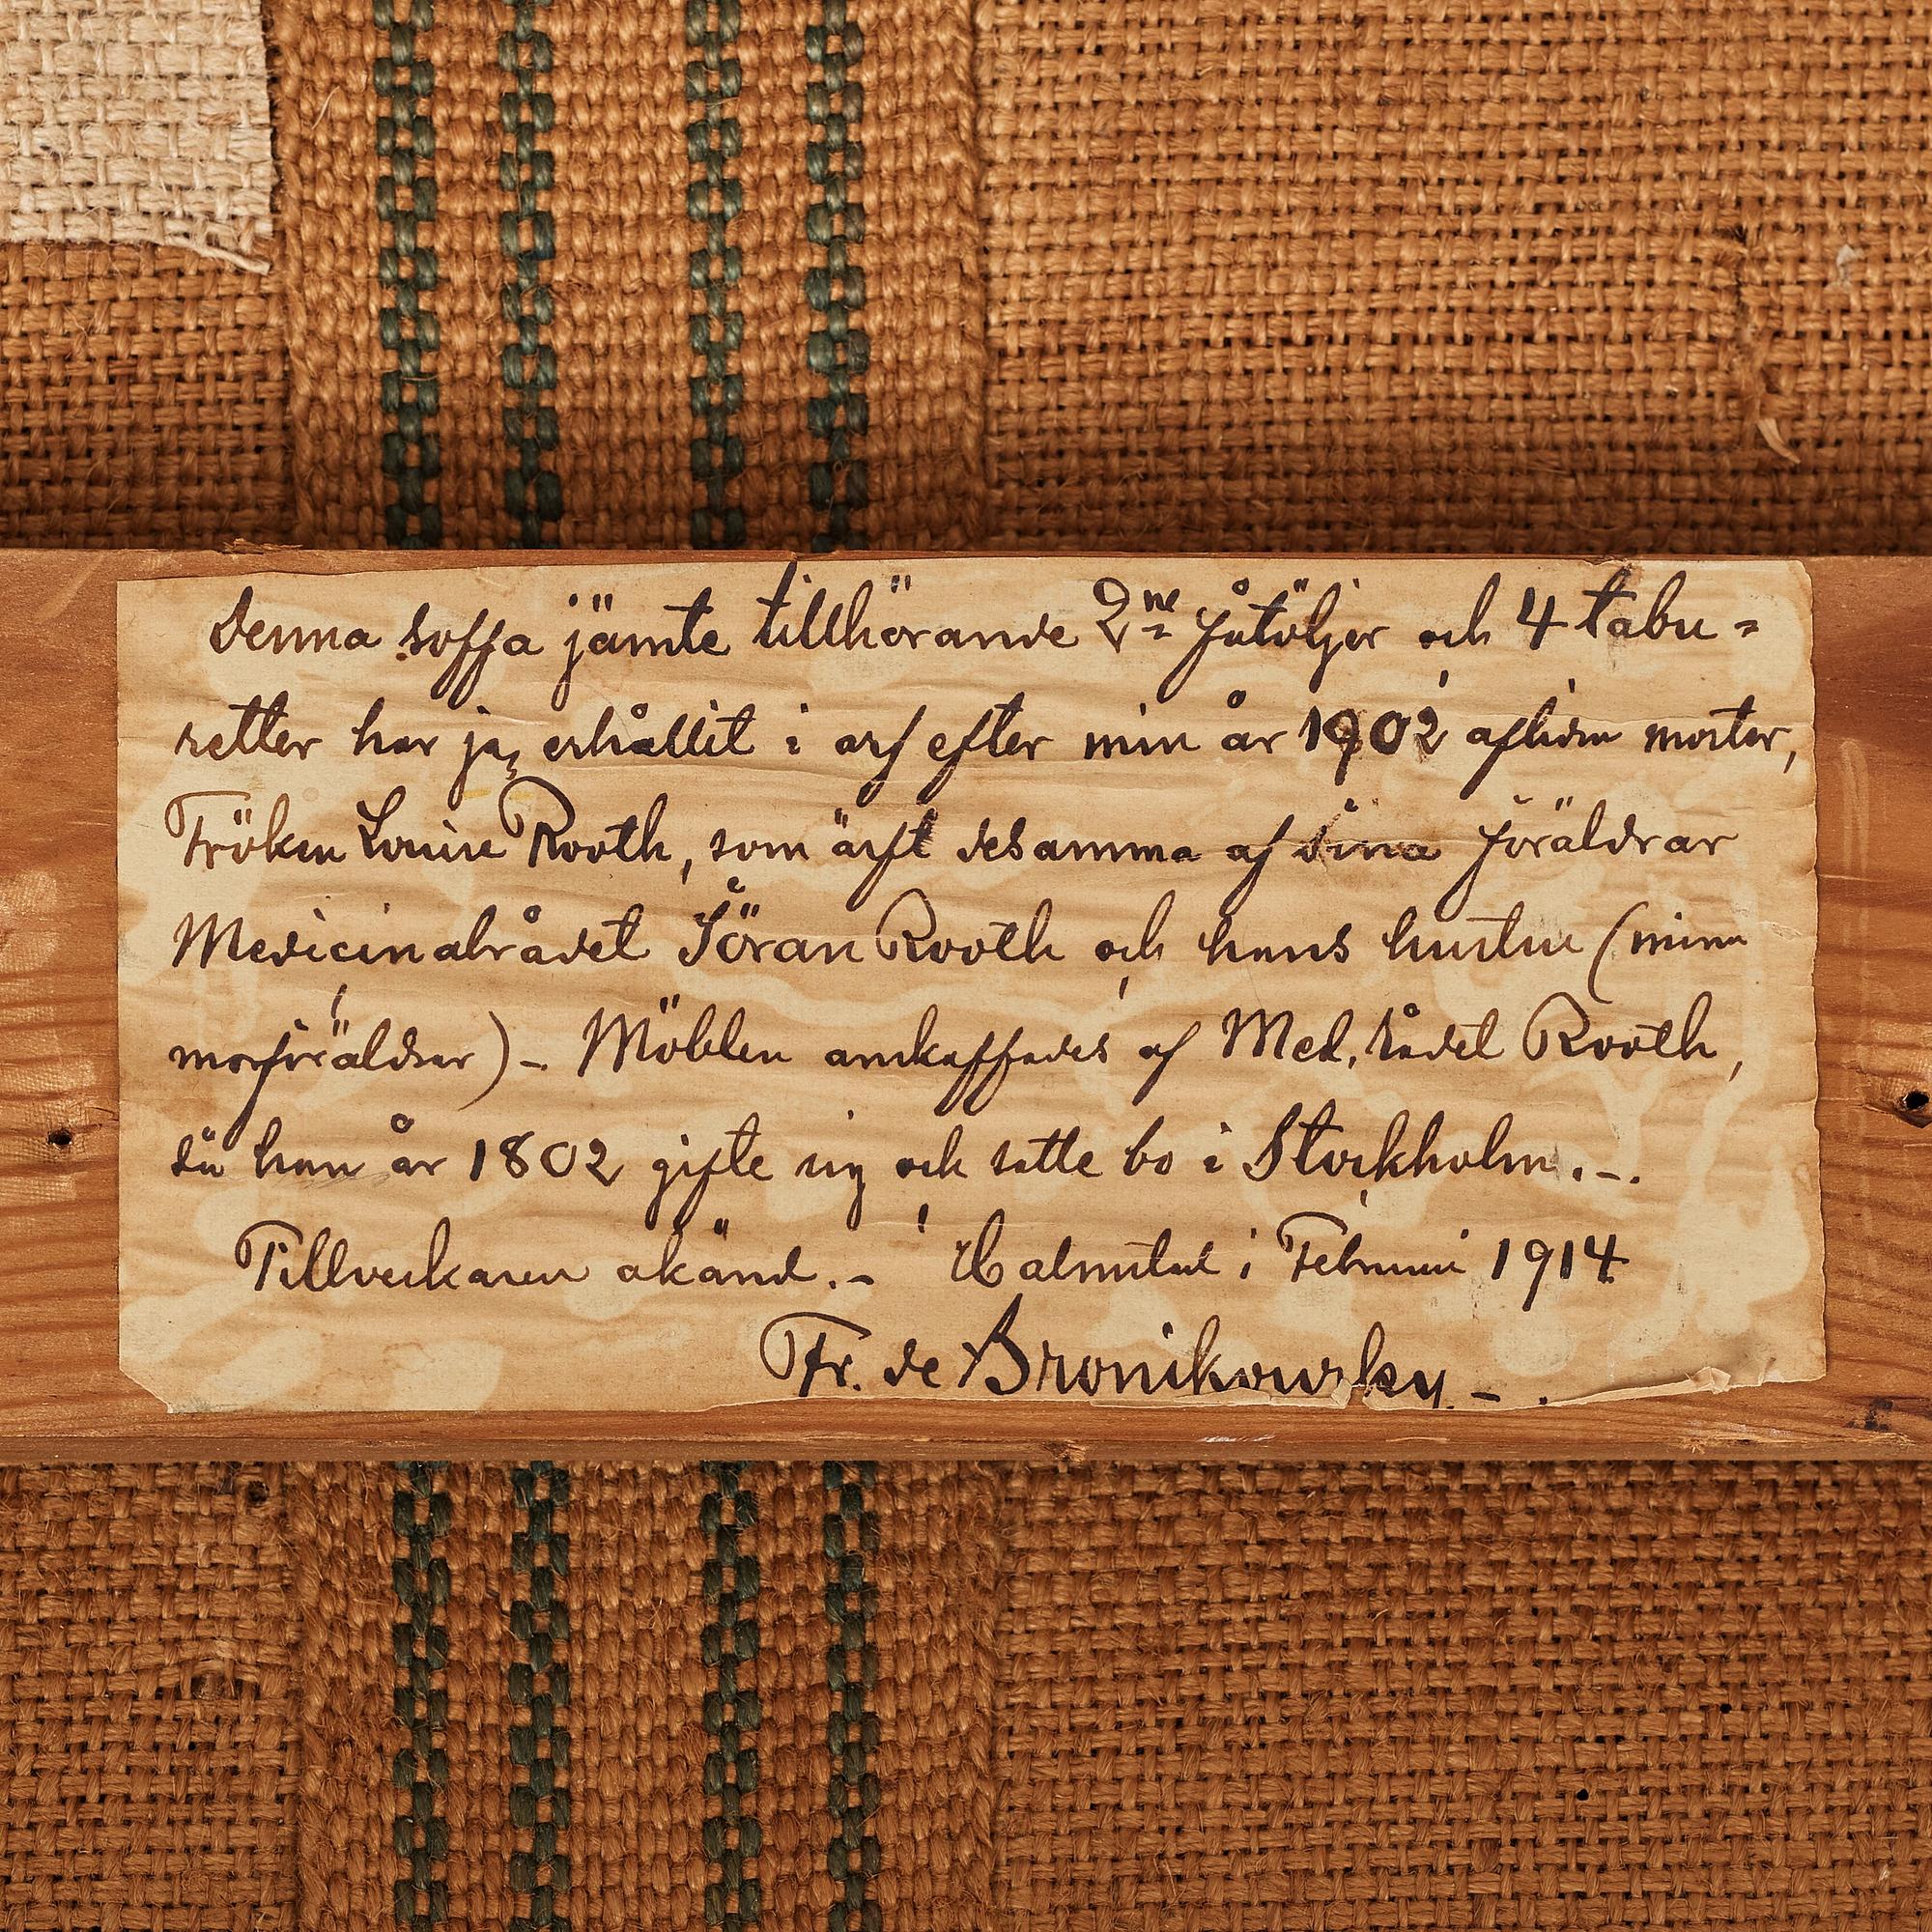 Denna soffa jämte tillhörande 2ne fåtöljer och 4 tabu=
retter har jag erhållit i arf efter min år 1902 aflidna moster,
Fröken Louise Rooth, som ärft desamma af sina föräldrar
Medicinalrådet Göran Rooth och hans hustru (mina
morföräldrar) – Möblen anskaffades af Med. Rådet Rooth,
då han år 1802 gifte sig och satte bo i Stockholm. –.
Tillverkaren okänd. – Halmstad i Februari 1914
Fr. de Bronikowsky. – .